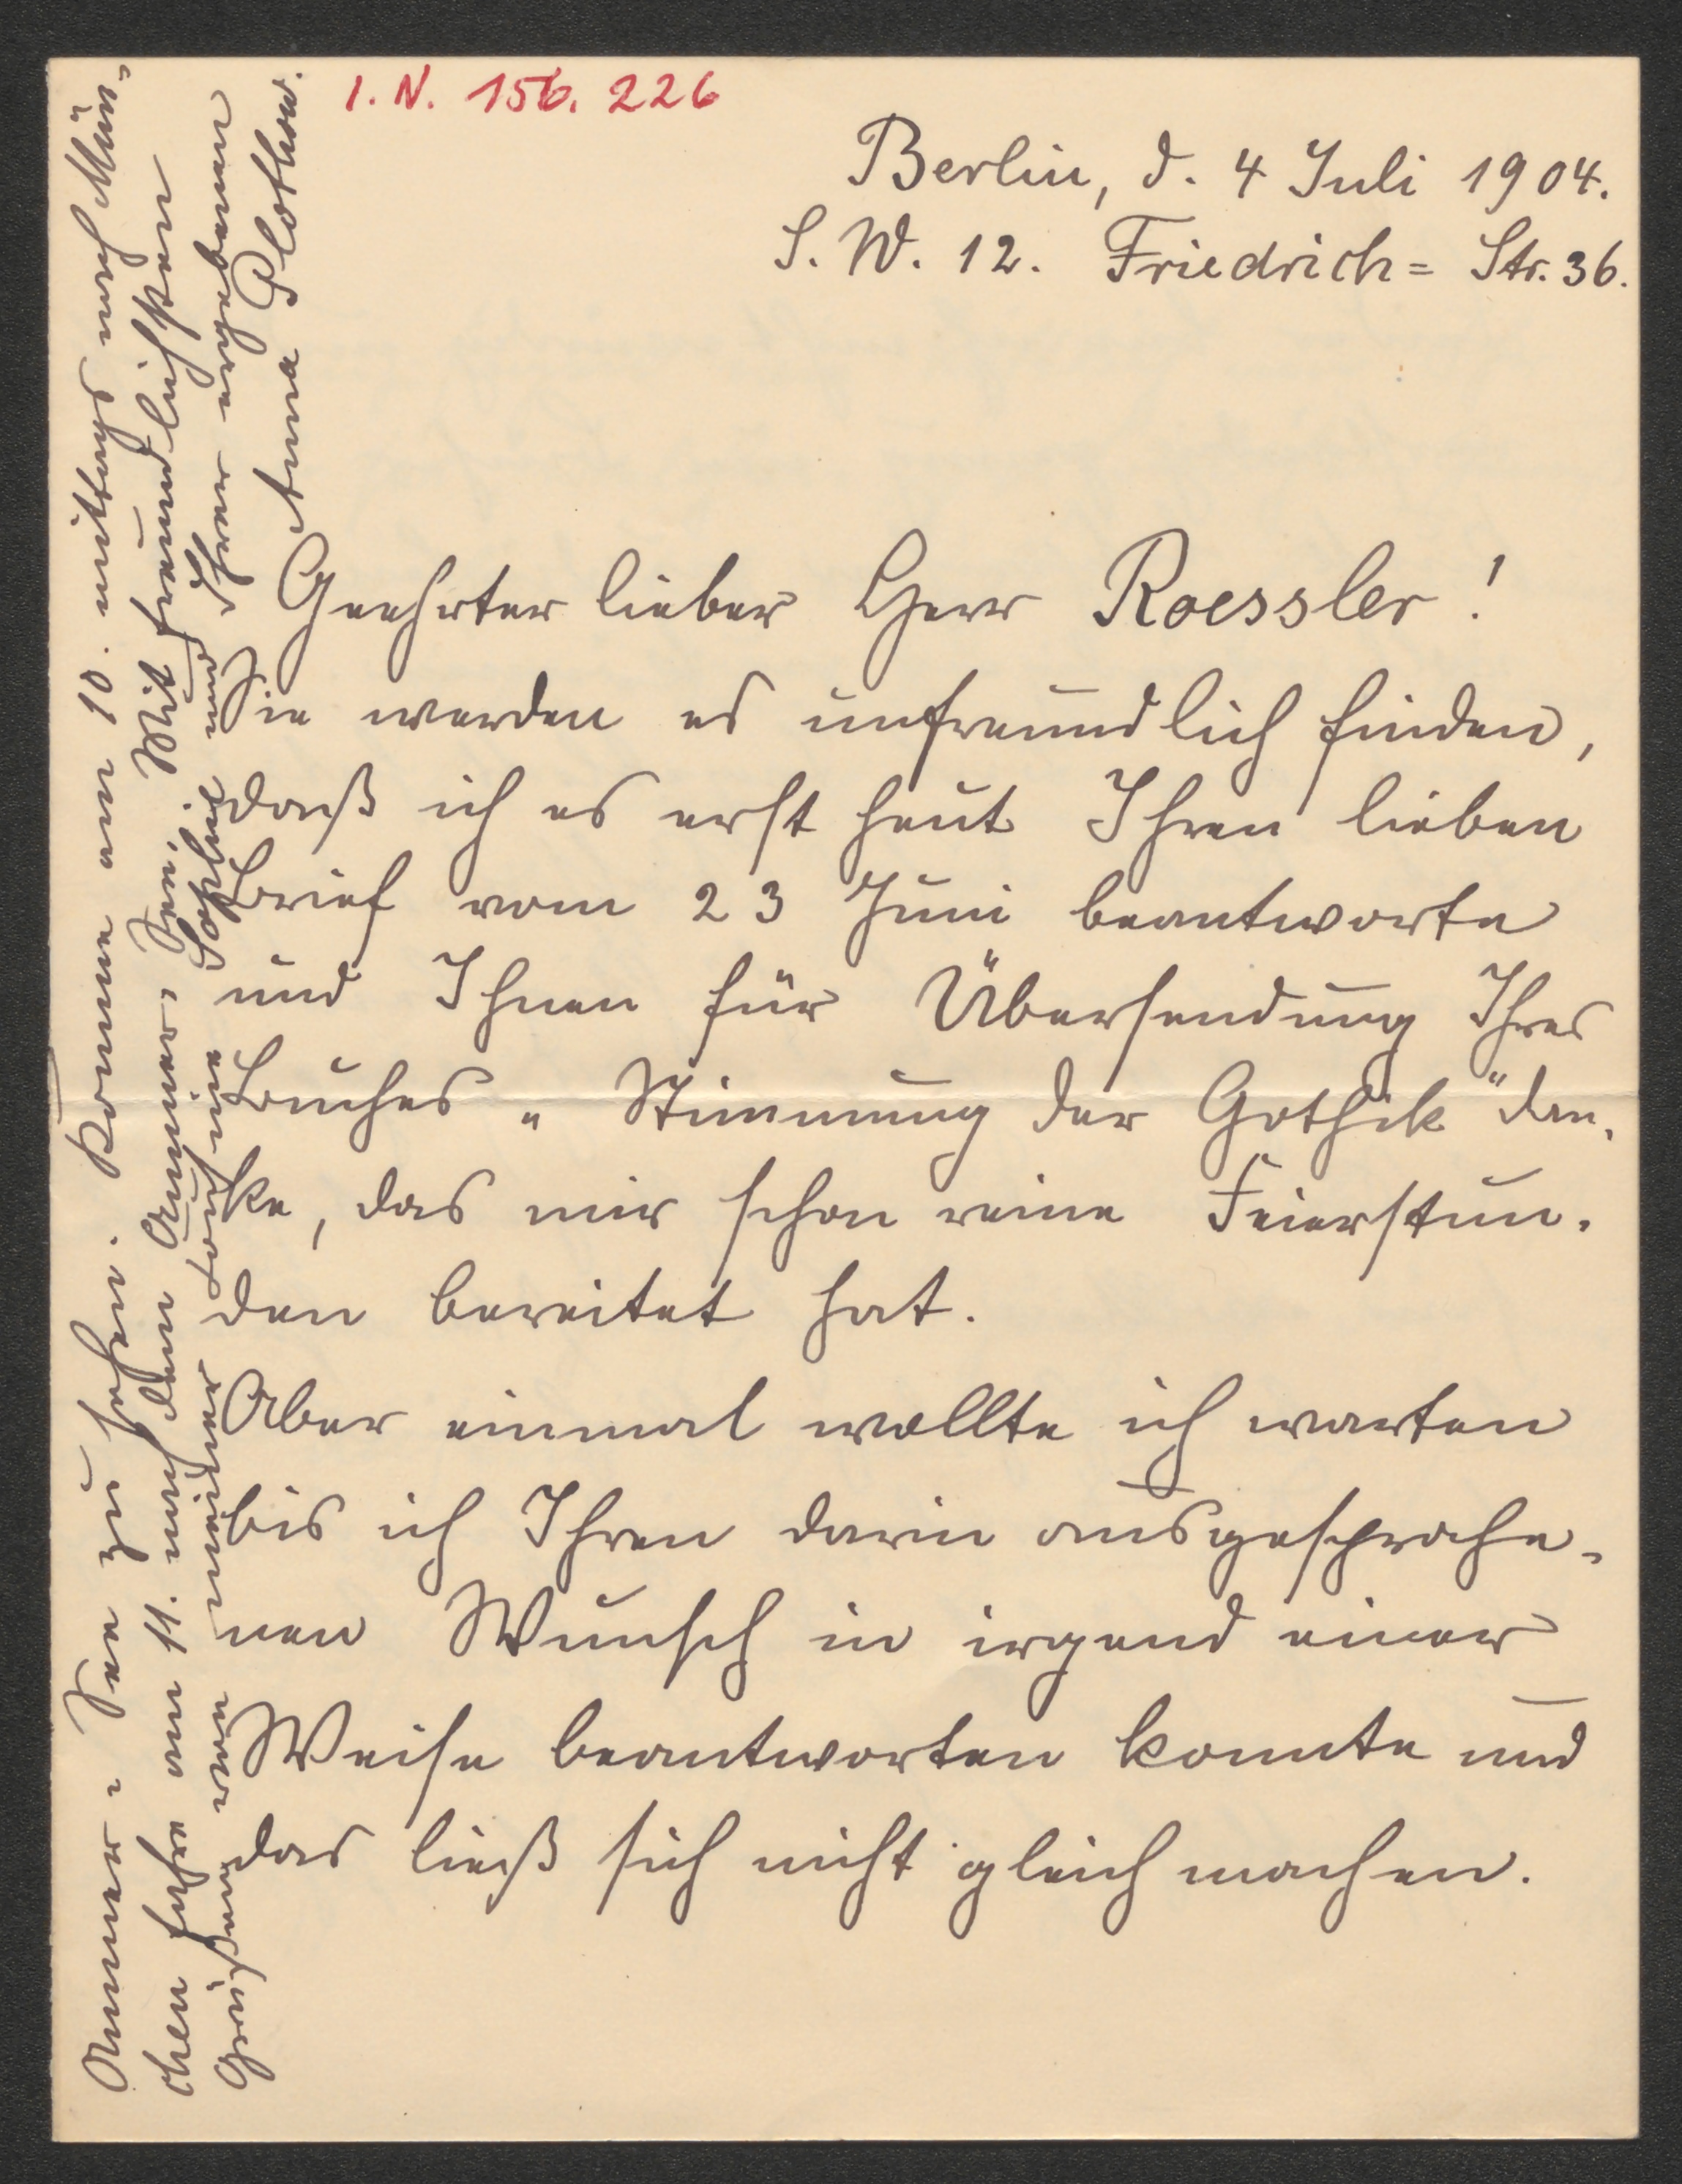 I. N. 156.226
Berlin, d. 4 Juli 1904.
S. W. 12. Friedrich= Str. 36.
Geehrter lieber Herr Roessler!
Sie werden es unfreundlich finden,
daß ich es erst heut Ihren lieben
Brief vom 23 Juni beantworte
und Ihnen für Übersendung Ihres
Buches „Stimmung der Gothik" dan-
ke, das mir schon reine Feierstun-
den bereitet hat.
Aber einmal wollte ich warten
bis ich Ihren darin ausgesproche-
nen Wunsch in irgend einer
Weise beantworten konnte und
das ließ sich nicht gleich machen.
Ammer-See zu sehen. Komme am 10. mittags nach Mün-
chen fahre am 11. nach dem Ammer-See. Mit freundlichsten
Grüßen von meiner Tochter Sophie und Ihrer ergebenen
Anna Plothow.